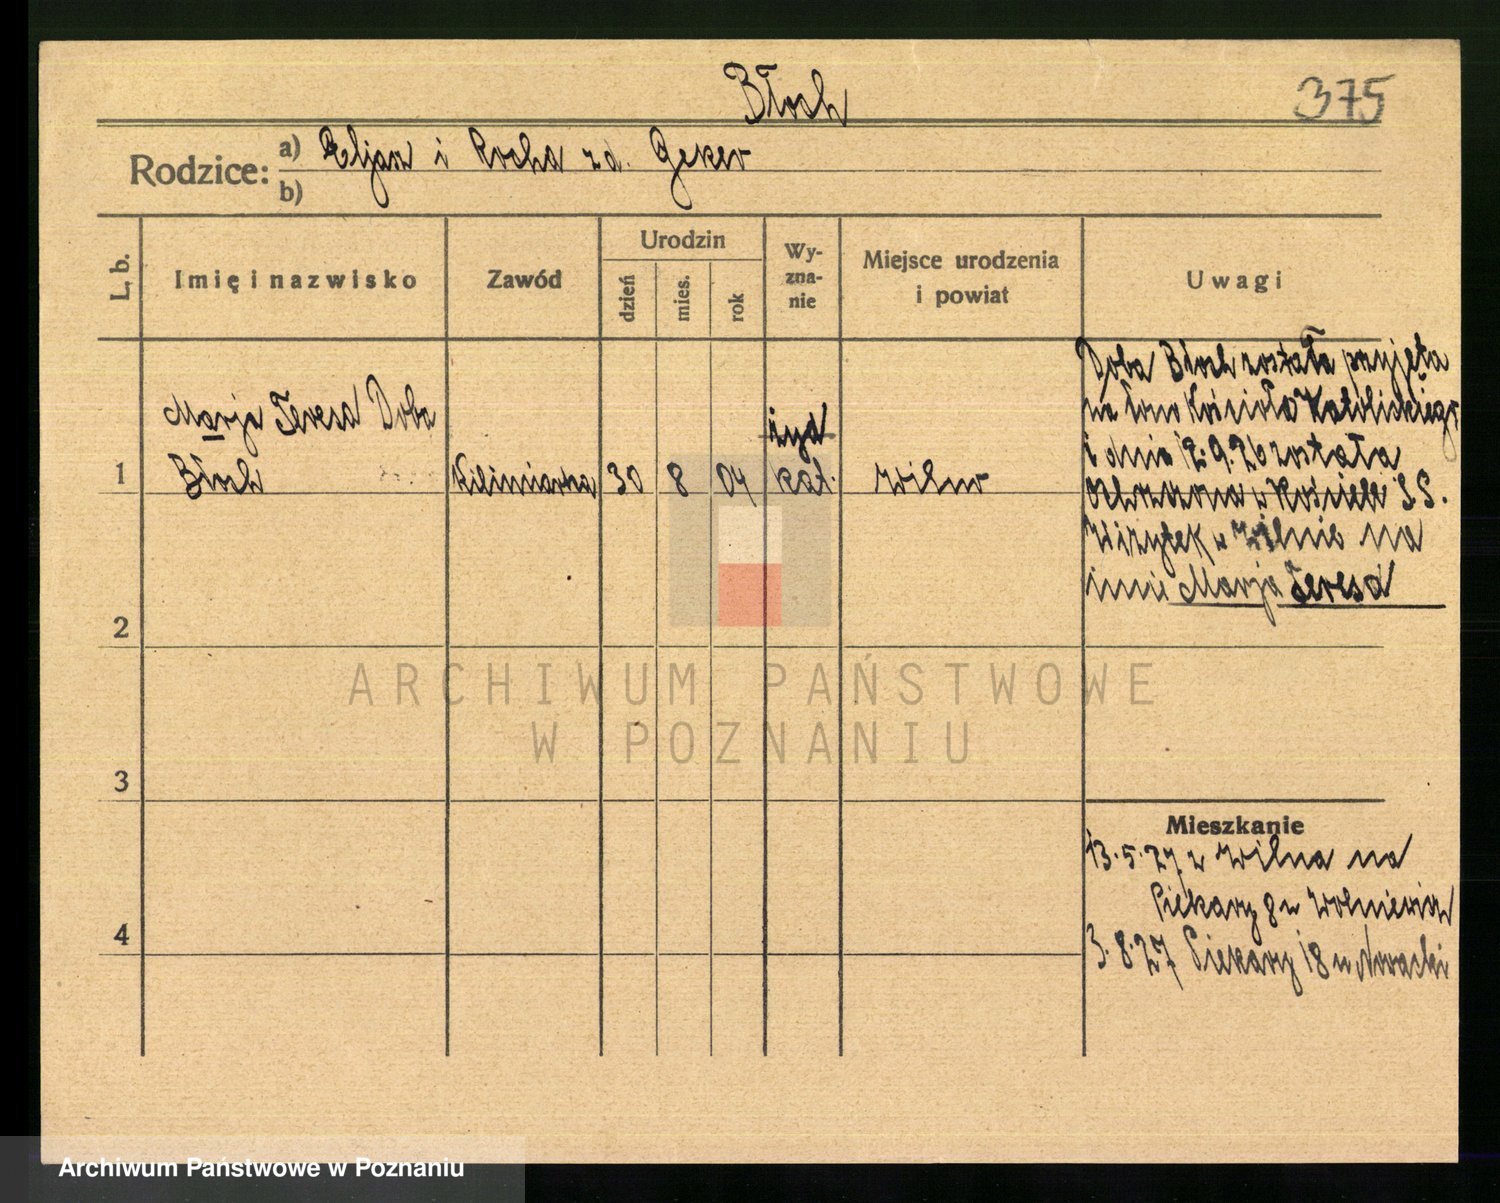 Błoch
375
Rodzice:
a) Eljasz i Rocha zd. Geker
b)
L. b.
Imię i nazwisko
Zawód
Urodzin
dzień
mies.
rok
Wy-
zna-
nie
Miejsce urodzenia
i powiat
Uwagi
Marja Teresa Doba
żyd
1 Błoch Kilimiarka 30 8 04 kat. Wilno
Doba Błoch została przyjęta
na łono Kościoła Katolickiego
i dnia 12.9.26 została
ochrzczona w Kościele S.S.
Wizytek w Wilnie na
imię Marja Teresa
2
3
4
Mieszkanie
13.5.27 z Wilna na
Piekary 8 u Wolniewicz
3.8.27 Piekary 18 u Nowacki
ARCHIWUM PAŃSTWOWE
W POZNANIU
Archiwum Państwowe w Poznaniu